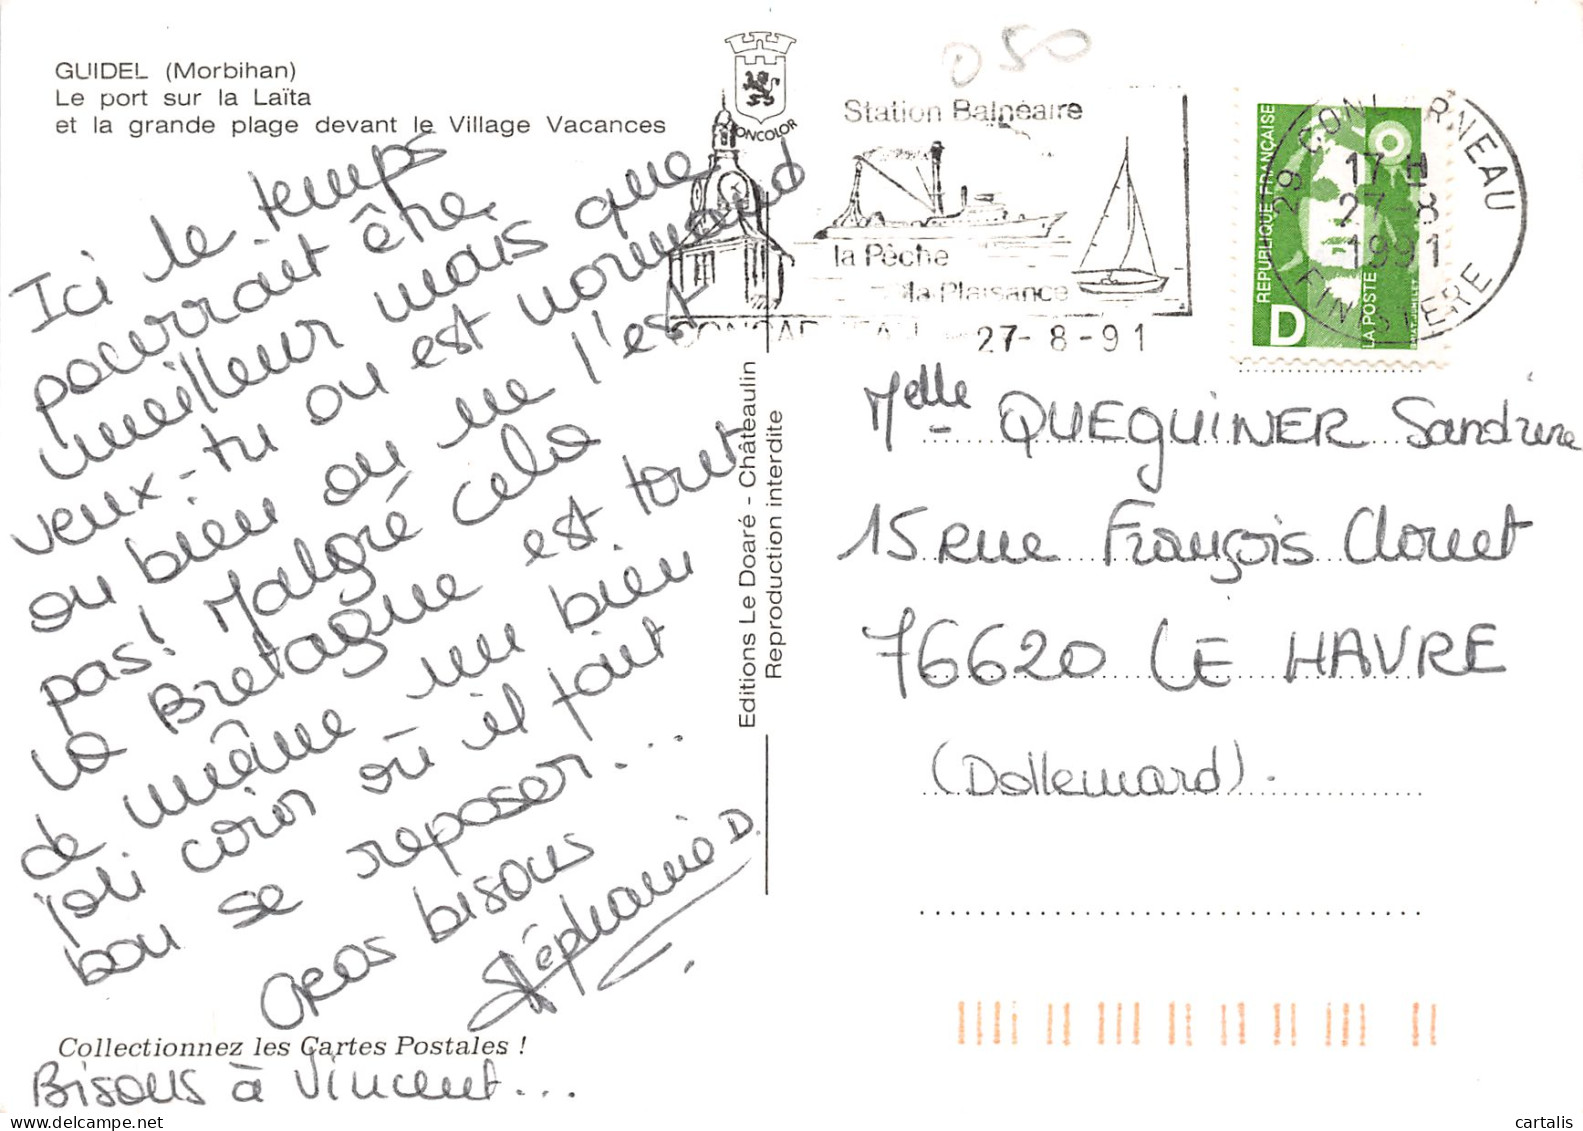 GUIDEL (Morbihan)
Le port sur la Laïta
et la grande plage devant le Village Vacances
Ici le temps
pourrait être
meilleur mais que
veux-tu on est normand
ou bien on ne l'est
pas! Malgré cela
la Bretagne est tout
de même un bien
joli coin où il fait
bon se reposer...
Gros bisous
Stéphanie D.
Collectionnez les Cartes Postales !
Bisous à Vincent...
Editions Le Doaré - Châteaulin
Reproduction interdite
050
Station Balnéaire
la Pèche
la Plaisance
CONCARNEAU 27-8-91
REPUBLIQUE FRANÇAISE
D
LA POSTE
29 CONCARNEAU
17 H
27-8
1991
FINISTERE
Melle QUEGUINER Sandrine
15 rue François Clouet
76620 LE HAVRE
(Dollemard).
cartalis